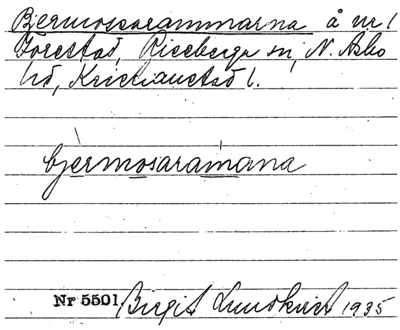 Bjermosarammarna å nr 1
Forestad, Riseberga sn, N. Åsbo
hd, Kristianstad l.
bjermosaramana
Nr 5501. Birgit Lundkvist 1935